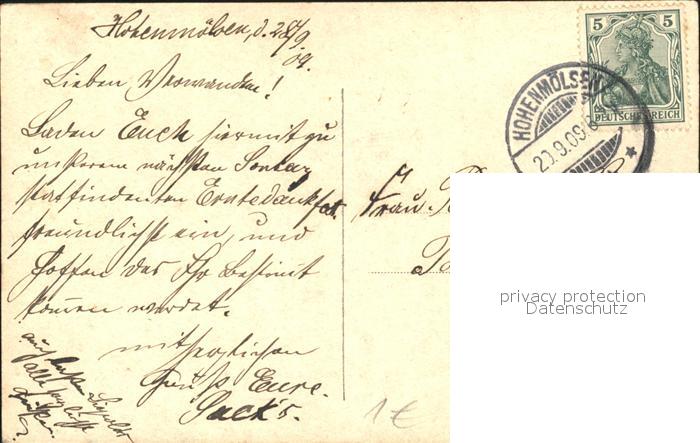 Hohenmölsen, d. 28/9
09.
Lieben Verwandten!
Laden Euch hiermit zu
unserem nächsten Sontag
stattfindenten Erntedankfest
freundlichst ein, und
hoffen das Ihr bestimt
kommen werdet.
mit herzlichen
Gruß Eure
Sack's.
auch
alle
Frau
5 5
DEUTSCHES REICH
HOHENMÖLSEN
9.09
privacy protection
Datenschutz
1€